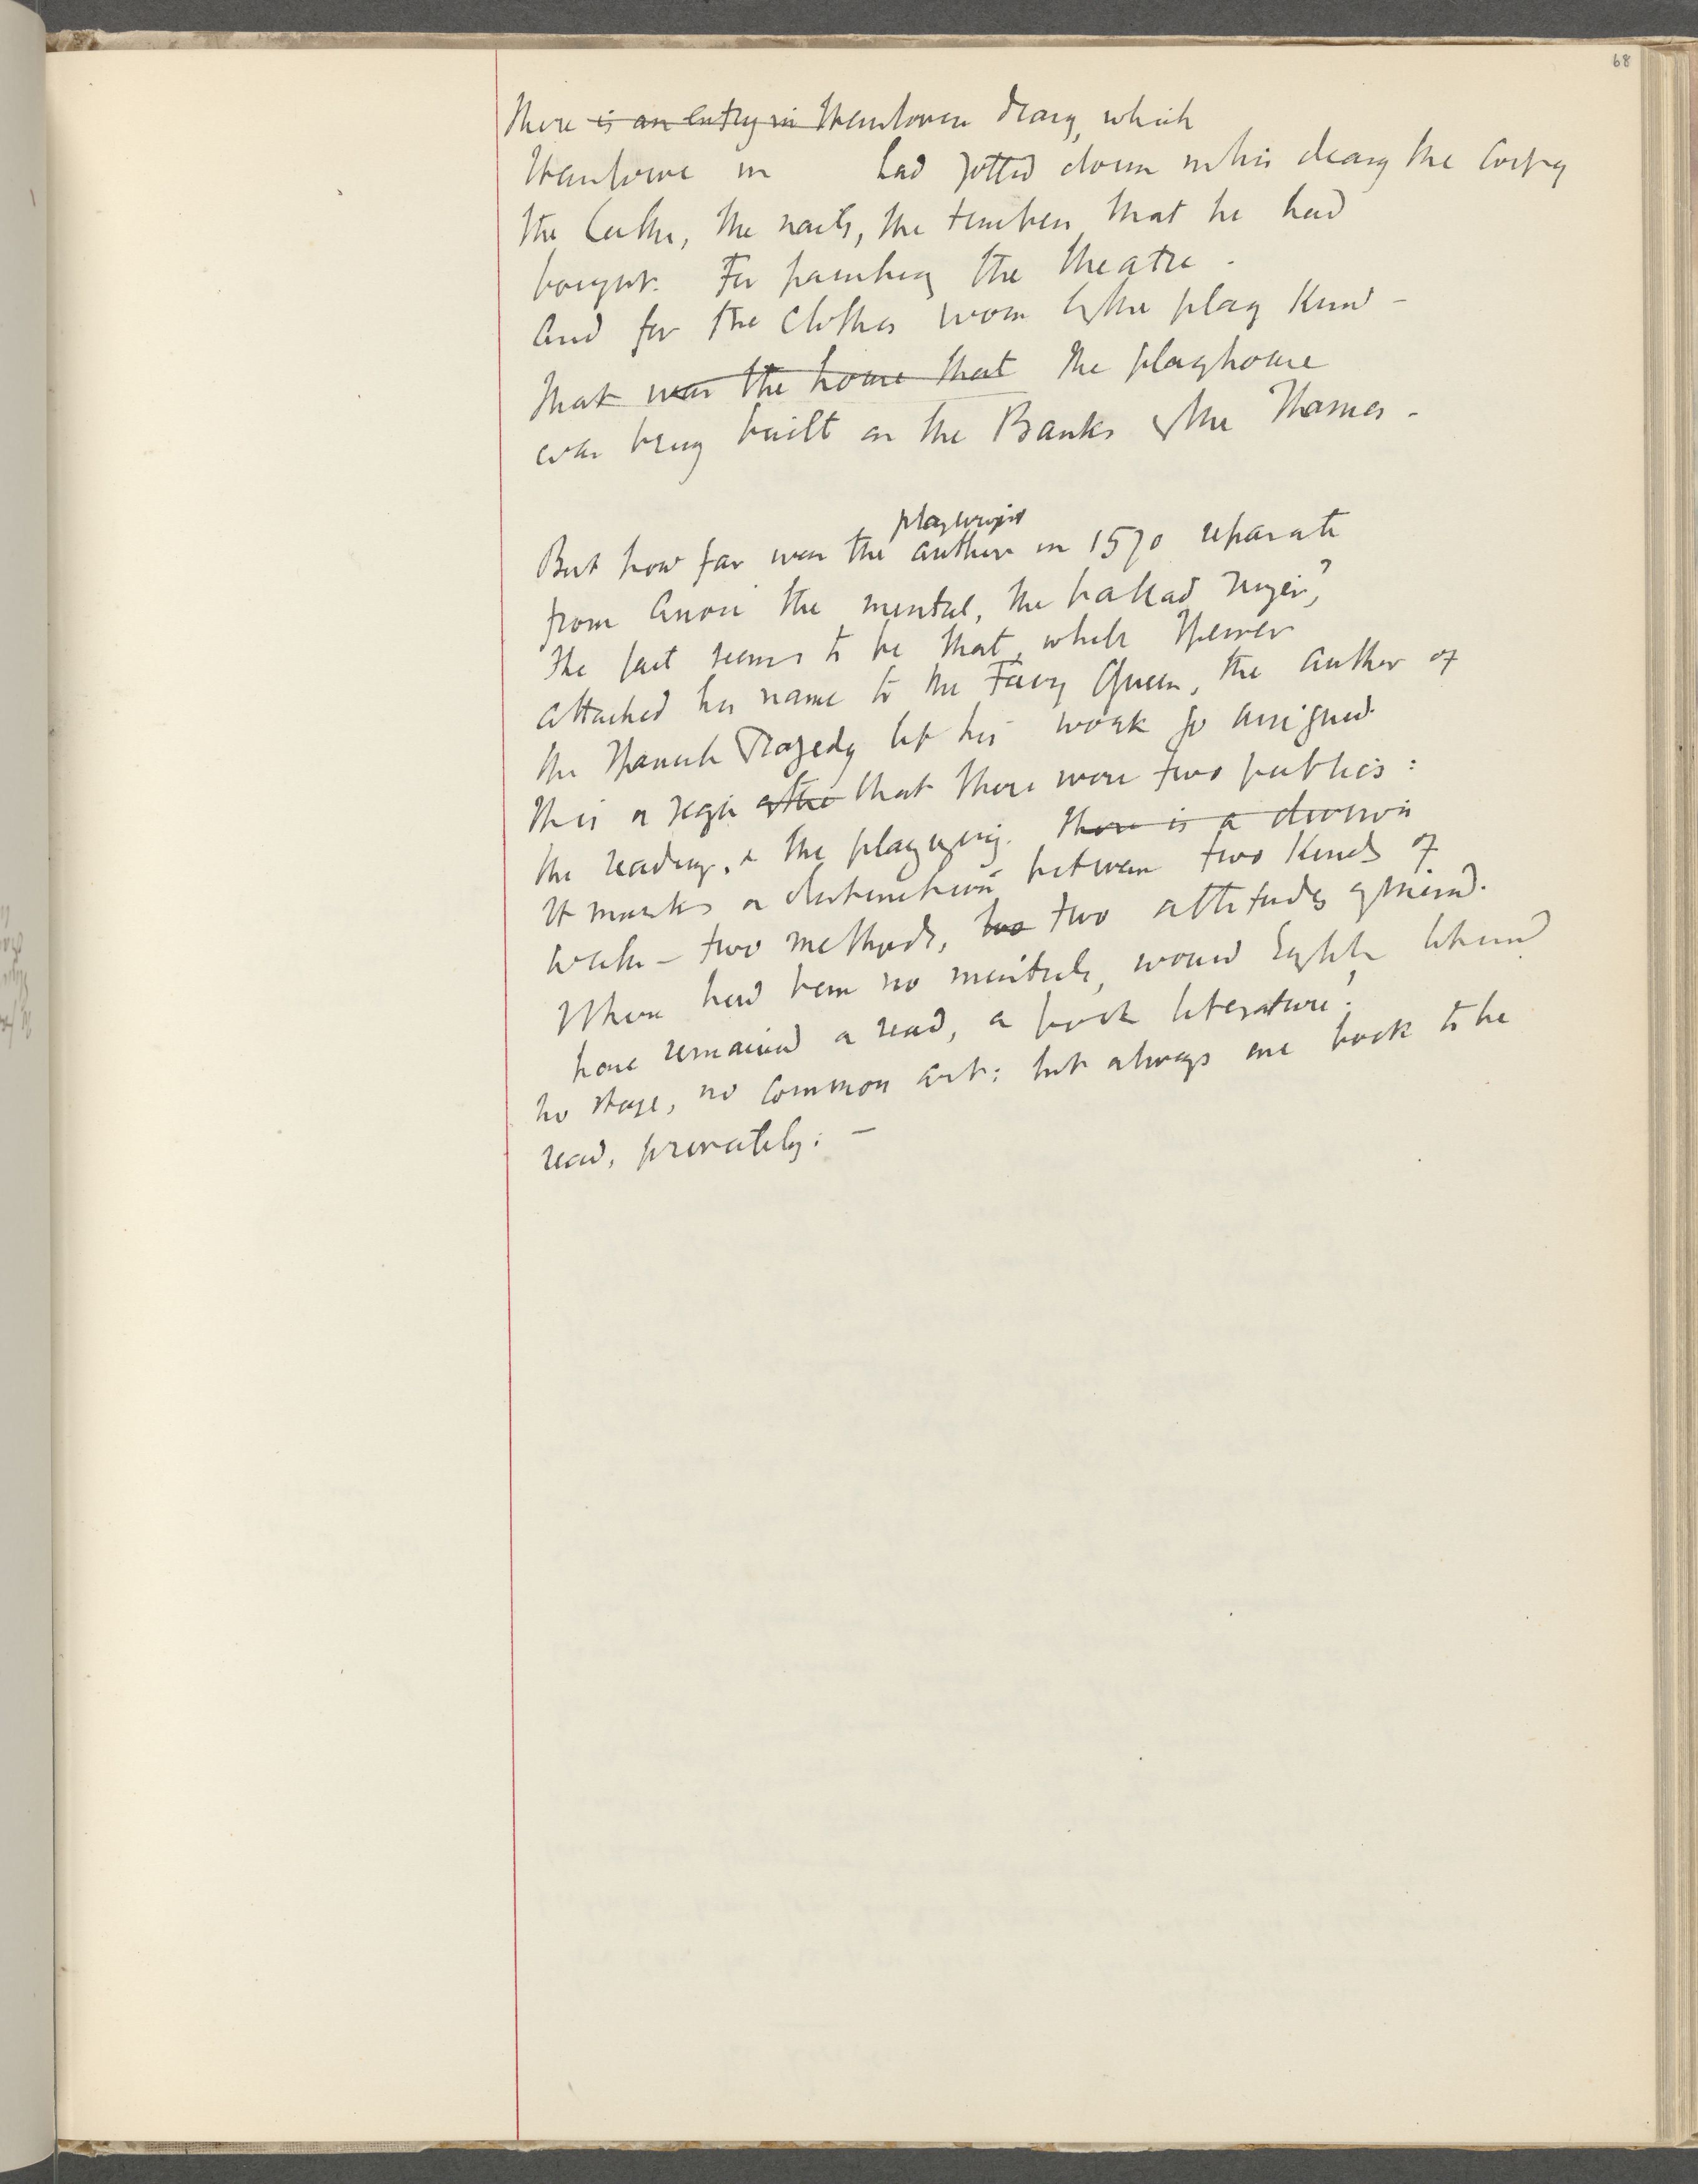 68
There is an entry in Henslowes diary, which
Henslowe in had jotted down in his diary the cost of
the laths, the nails, the timber that he had
bought. For painting the theatre.
And for the clothes worn by the play Kind -
that was the house that the playhouse
was being built on the Banks of the Thames -
playwright
But how far was the author in 1570 separate
from Anon the minstrel, the ballad singer?
The fact seems to be that, while Spenser
attached his name to the Faery Queen, the author of
the Spanish Tragedy left his work go unsigned
This a sign of the that there were two publics:
the reading, & the playgoing. There is a division
It marks a distinction between two kinds of
two methods, two two attitudes of mind.
Where had been no minstrels, would English
have remained a read, a book literature;
no stage, no common art: but always one book to be
read, privately: -